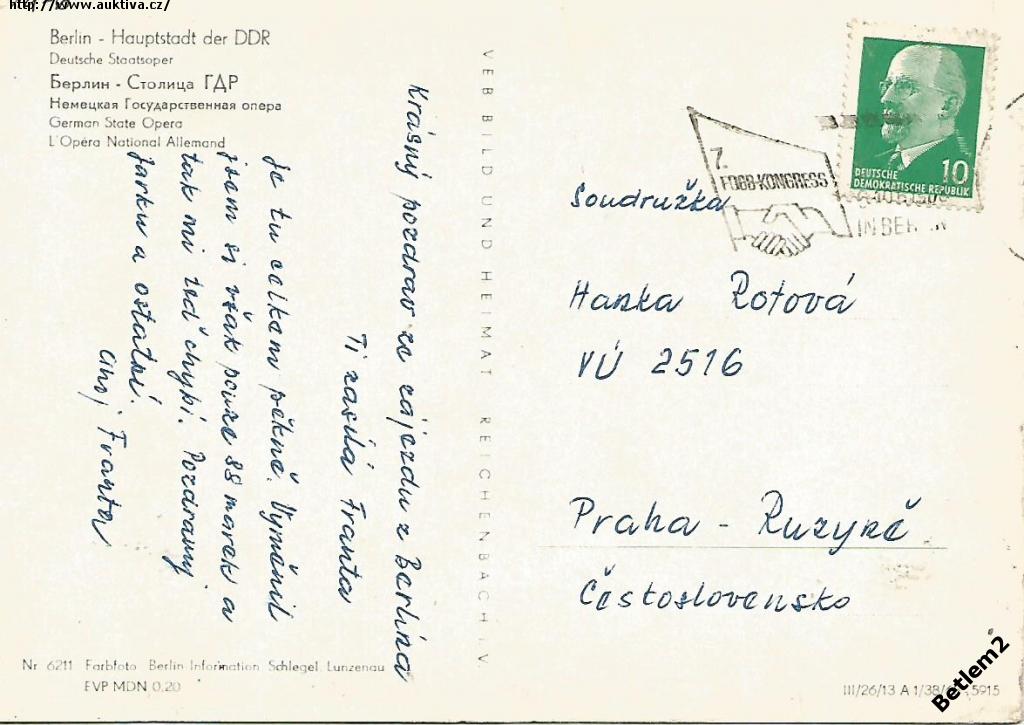 http://www.auktiva.cz/
Berlin - Hauptstadt der DDR
Deutsche Staatsoper
Берлин - Столица ГДР
Немецкая Государственная опера
German State Opera
L'Opéra National Allemand
Krásný pozdrav ze zájezdu z Berlína
Ti zasílá Franta
Je tu celkem pěkně. Vyměnil
jsem si však pouze 88 marek a
tak mi teď chybí. Pozdravuj
Jarku a ostatní.
Ahoj Franta
Nr. 6211 Farbfoto Berlin Information Schlegel, Lunzenau
EVP MDN 0,20
VEB BILD UND HEIMAT REICHENBACH I. V.
7.
FDGB-KONGRESS
IN BERLIN
10
DEUTSCHE
DEMOKRATISCHE REPUBLIK
Soudružka
Hanka Rotová
VÚ 2516
Praha - Ruzyně
Československo
III/26/13 A 1/38/ 5915
Betlem2